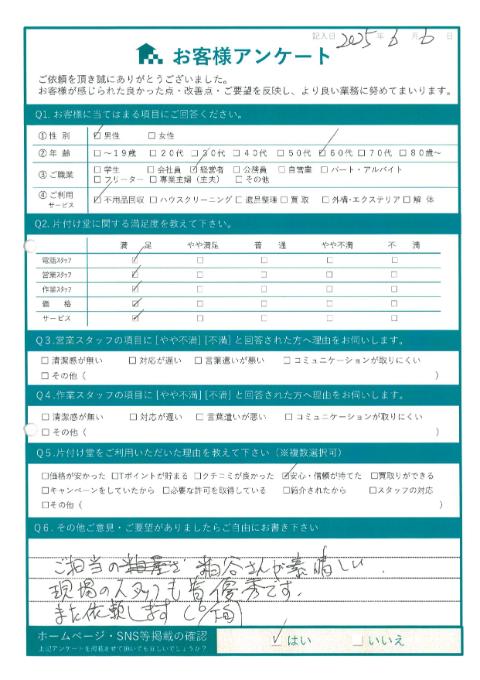 記入日 2025年 6月 6日
お客様アンケート
ご依頼を頂き誠にありがとうございました。
お客様が感じられた良かった点・改善点・ご要望を反映し、より良い業務に努めてまいります。
Q1. お客様に当てはまる項目にご回答ください。
①性 別 ☑男性 □女性
②年 齢 □～19歳 □20代 □30代 □40代 □50代 ☑60代 □70代 □80歳～
③ご職業 □学生 □会社員 ☑経営者 □公務員 □自営業 □パート・アルバイト
□フリーター □専業主婦（主夫） □その他
④ご利用サービス ☑不用品回収 □ハウスクリーニング □遺品整理 □買 取 □外構・エクステリア □解 体
Q2. 片付け堂に関する満足度を教えて下さい。
満 足 やや満足 普 通 やや不満 不 満
電話スタッフ ☑ □ □ □ □
営業スタッフ ☑ □ □ □ □
作業スタッフ ☑ □ □ □ □
価 格 ☑ □ □ □ □
サービス ☑ □ □ □ □
Q3. 営業スタッフの項目に [やや不満] [不満] と回答された方へ理由をお伺いします。
□清潔感が無い □対応が遅い □言葉遣いが悪い □コミュニケーションが取りにくい
□その他（ ）
Q4. 作業スタッフの項目に [やや不満] [不満] と回答された方へ理由をお伺いします。
□清潔感が無い □対応が遅い □言葉遣いが悪い □コミュニケーションが取りにくい
□その他（ ）
Q5. 片付け堂をご利用いただいた理由を教えて下さい（※複数選択可）
□価格が安かった □Tポイントが貯まる □クチコミが良かった ☑安心・信頼が持てた □買取りができる
□キャンペーンをしていたから □必要な許可を取得している □紹介されたから □スタッフの対応
□その他（ ）
Q6. その他ご意見・ご要望がありましたらご自由にお書き下さい
ご担当の 粕谷さんが素晴しい.
現場のスタッフも皆優秀です.
また依頼します
ホームページ・SNS等掲載の確認 ☑はい □いいえ
上記アンケートを掲載させて頂いても宜しいでしょうか？